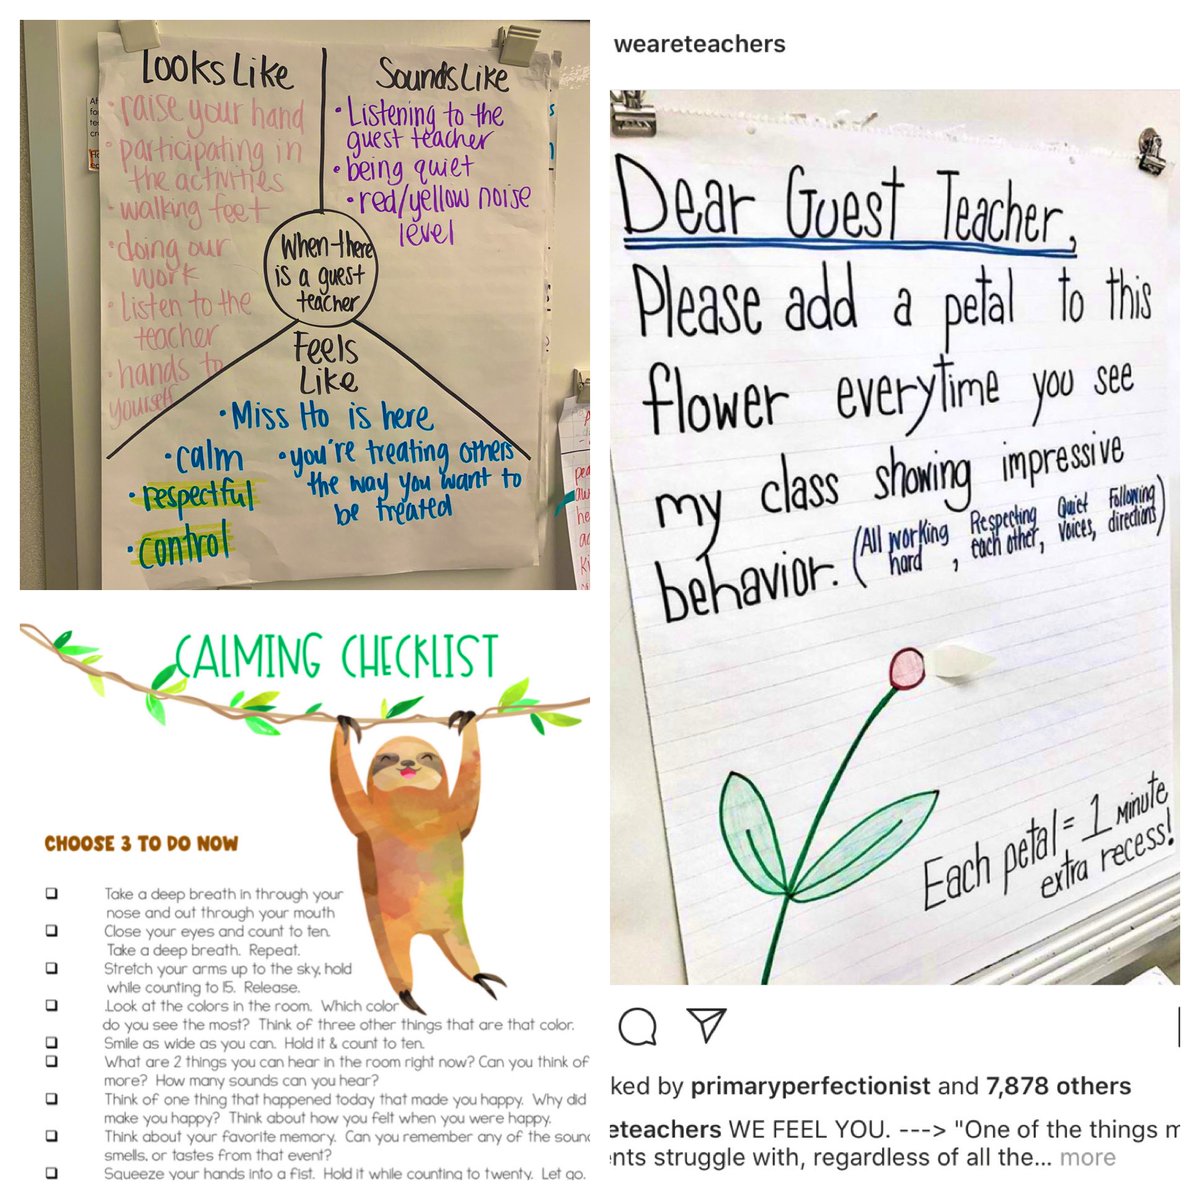 Looks Like
• raise your hand
• participating in
the activities
• walking feet
• doing our
work
• listen to the
teacher
• hands to
yourself
Sounds Like
• Listening to the
guest teacher
• being quiet
• red/yellow noise
level
When there
is a guest
teacher
Feels
Like
• Miss Ho is here
• calm
• respectful
• control
• you're treating others
the way you want to
be treated
CALMING CHECKLIST
CHOOSE 3 TO DO NOW
Take a deep breath in through your
nose and out through your mouth
Close your eyes and count to ten.
Take a deep breath. Repeat.
Stretch your arms up to the sky, hold
while counting to 15. Release.
Look at the colors in the room. Which color
do you see the most? Think of three other things that are that color.
Smile as wide as you can. Hold it & count to ten.
What are 2 things you can hear in the room right now? Can you think of
more? How many sounds can you hear?
Think of one thing that happened today that made you happy. Why did
make you happy? Think about how you felt when you were happy.
Think about your favorite memory. Can you remember any of the soun
smells, or tastes from that event?
Squeeze your hands into a fist. Hold it while counting to twenty. Let go.
weareteachers
Dear Guest Teacher,
Please add a petal to this
flower everytime you see
my class showing impressive
behavior. (All working hard, Respecting each other, Quiet Voices, Following directions)
Each petal = 1 minute
extra recess!
ked by primaryperfectionist and 7,878 others
eteachers WE FEEL YOU. ---> "One of the things m
nts struggle with, regardless of all the... more